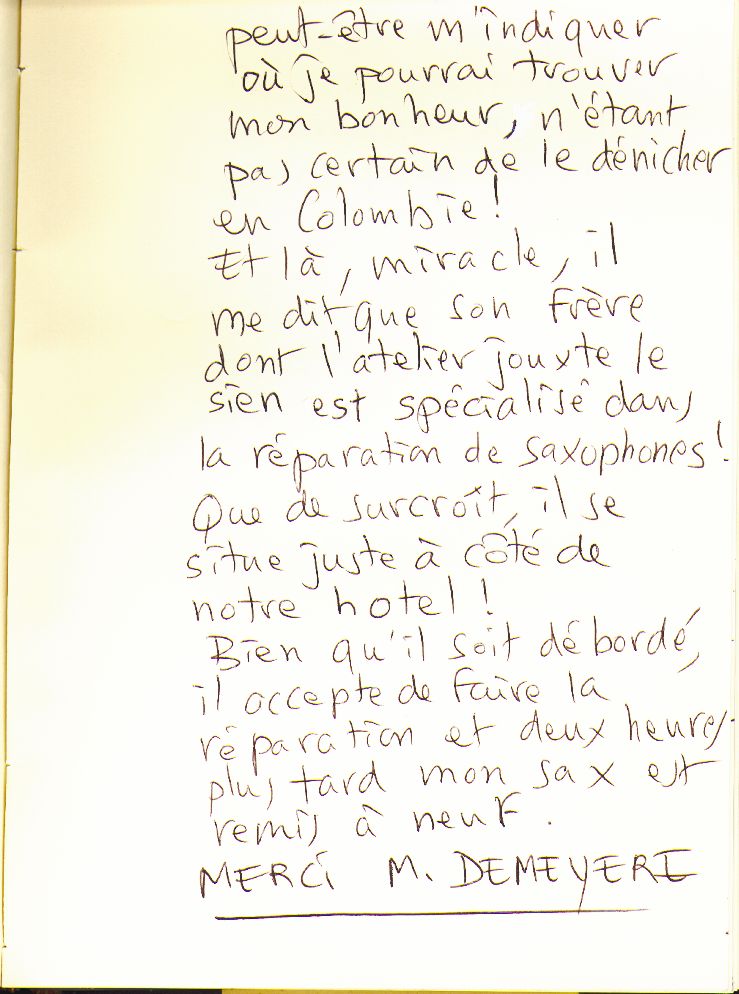 peut-être m'indiquer
où je pourrai trouver
mon bonheur, n'étant
pas certain de le dénicher
en Colombie !
Et là, miracle, il
me dit que son frère
dont l'atelier jouxte le
sien est spécialisé dans
la réparation de saxophones !
Que de surcroît, il se
situe juste à côté de
notre hotel !
Bien qu'il soit débordé,
il accepte de faire la
réparation et deux heures
plus tard mon sax est
remis à neuf.
MERCI M. DEMEYERE